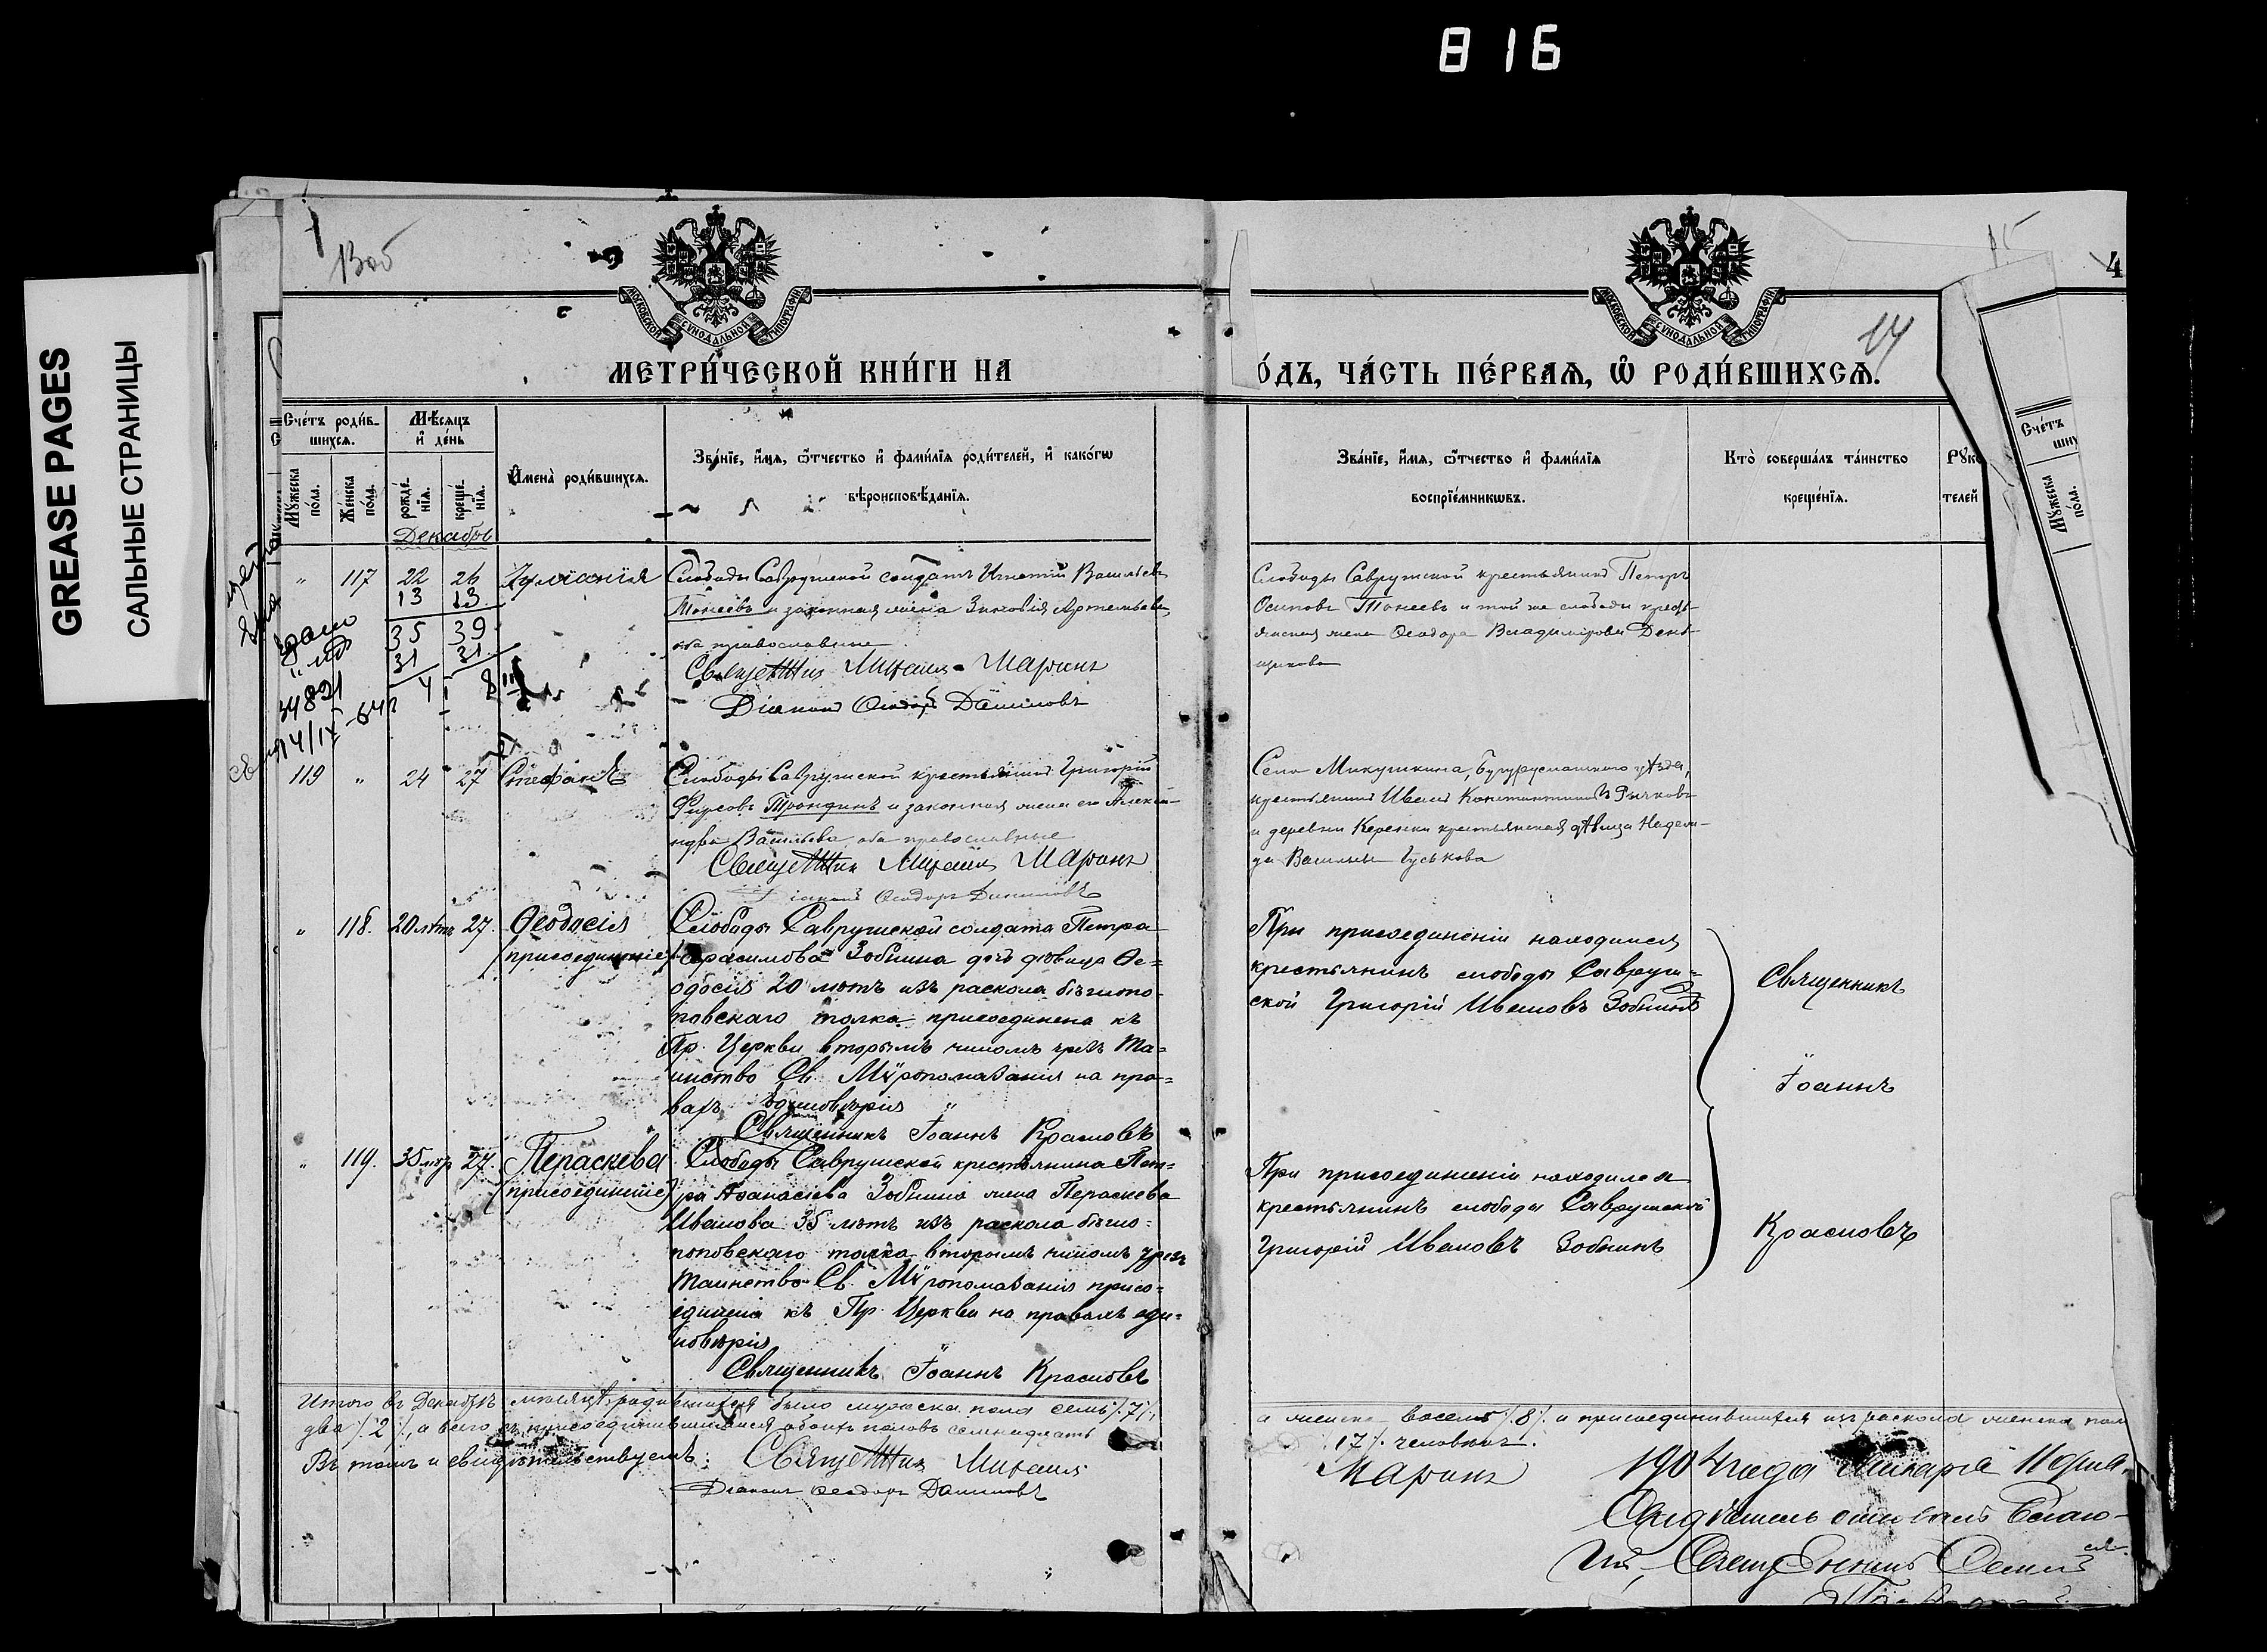 816
GREASE PAGES
САЛЬНЫЕ СТРАНИЦЫ
МОСКОВСКОЙ СѴНОДАЛЬНОЙ ТИПОГРАФІИ
МОСКОВСКОЙ СѴНОДАЛЬНОЙ ТИПОГРАФІИ
4
14
МЕТРИ́ЧЕСКОЙ КНИ́ГИ НА
О́ДЪ, ЧА́СТЬ ПЕ́РВАѦ, Ѡ҆ РОДИ́ВШИХСѦ.
Сче́тъ роди́в-
шихсѧ.
Мꙋ́жеска по́ла.
Же́нска по́ла.
Мѣ́сѧцъ
и҆ де́нь
рожде́-
нїѧ.
креще́-
нїѧ.
Декабрь
И҆мена̀ роди́вшихсѧ.
Зва́нїе, и҆́мѧ, ѻ҆́тчество и҆ фами́лїѧ роди́телей, и҆ како́гѡ
вѣроисповѣ́данїѧ.
Зва́нїе, и҆́мѧ, ѻ҆́тчество и҆ фами́лїѧ
воспрїе́мникѡвъ.
Кто̀ соверша́лъ та́инство
креще́нїѧ.
Рꙋко
телей
Сче́тъ
Мꙋ́жеска
по́ла.
" 117 22 26 Іуліанія
13 13
35 39
31 31
4 8
Слободы Саврушской солдатъ Игнатій Васильевъ
Тонеевъ и законная жена Зиновія Артемьева,
оба православные
Священникъ Михаилъ Маринъ
Діаконъ Ѳеодоръ Даниловъ
Слободы Саврушской крестьянинъ Петръ
Осиповъ Тонеевъ и той же слободы кресть-
янская жена Ѳеодора Владимірова День-
щикова
119 " 24 27 Стефанъ
Слободы Саврушской крестьянинъ Григорій
Фирсовъ Трондинъ и законная жена его Алексан-
ндра Васильева, оба православные
Священникъ Михаилъ Маринъ
Діаконъ Ѳеодоръ Даниловъ
Села Микушкина, Бугурусланскаго уѣзда,
крестьянинъ Иванъ Константиновъ Рычковъ
и деревни Керенки крестьянская дѣвица Надеж-
да Васильева Гуськова
" 118. 20 лѣтъ 27. Ѳеодосія
(присоединеніе)
Слободы Саврушской солдата Петра
Герасимова Зобнина дочь дѣвица Ѳе=
одосія 20 лѣтъ изъ раскола бѣглопо-
повскаго толка присоединена къ
Пр. Церкви вторымъ чиномъ чрезъ Та=
инство Св. Мѵропомазанія на пра=
вахъ единовѣрія
Священникъ Іоаннъ Красновъ
При присоединеніи находился
крестьянинъ слободы Савруш=
ской Григорій Ивановъ Зобнинъ
Священникъ
Іоаннъ
Красновъ
" 119. 35 лѣтъ 27. Параскева
(присоединеніе)
Слободы Саврушской крестьянина Пет=
ра Аѳанасіева Зобнина жена Параскева
Иванова 35 лѣтъ изъ раскола бѣгло=
поповскаго толка вторымъ чиномъ чрезъ
Таинство Св. Мѵропомазанія присо=
единена къ Пр. Церкви на правахъ еди=
новѣрія
Священникъ Іоаннъ Красновъ
При присоединеніи находился
крестьянинъ слободы Саврушской
Григорій Ивановъ Зобнинъ
Итого въ Декабрѣ мѣсяцѣ родившихся было мужска пола семь /.7/.,
а женска восемь /.8/. и присоединившихся изъ раскола женска пола
два /.2/., а всего съ присоединившимися обоихъ половъ семнадцать
/.17/. человѣкъ.
Въ томъ и свидѣтельствуемъ: Священникъ Михаилъ
Маринъ
Діаконъ Ѳеодоръ Даниловъ
1904 года Января 11 дня